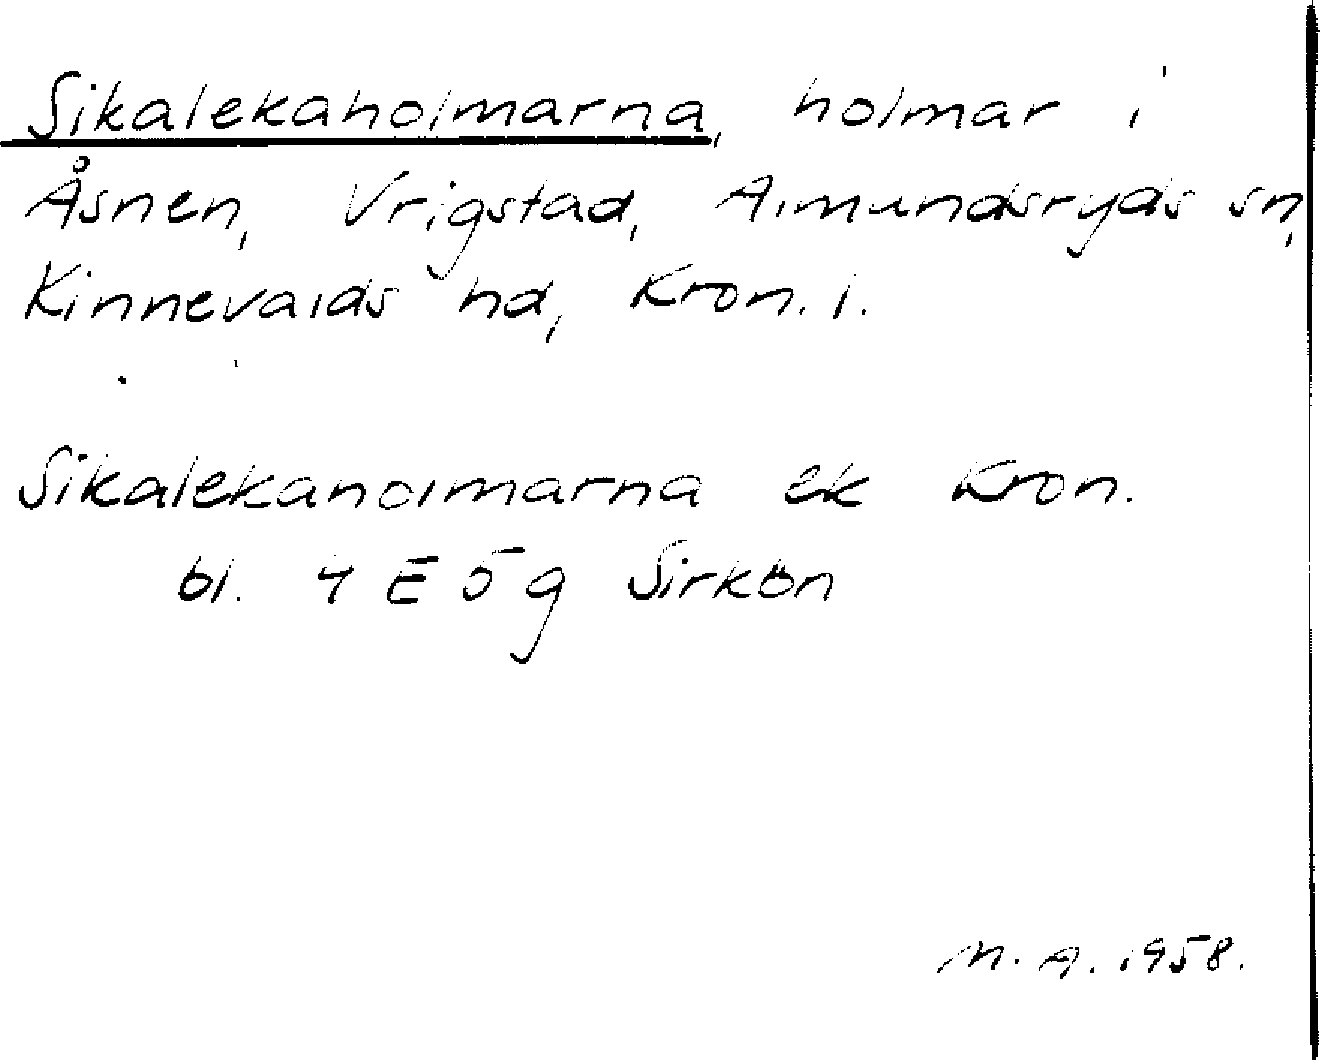 Sikalekaholmarna, holmar i
Åsnen, Vrigstad, Almundsryds sn,
Kinnevalds hd, Kron. l.
Sikalekaholmarna ek Kron.
bl. 4 E 5 g Sirkön
M. A. 1958.